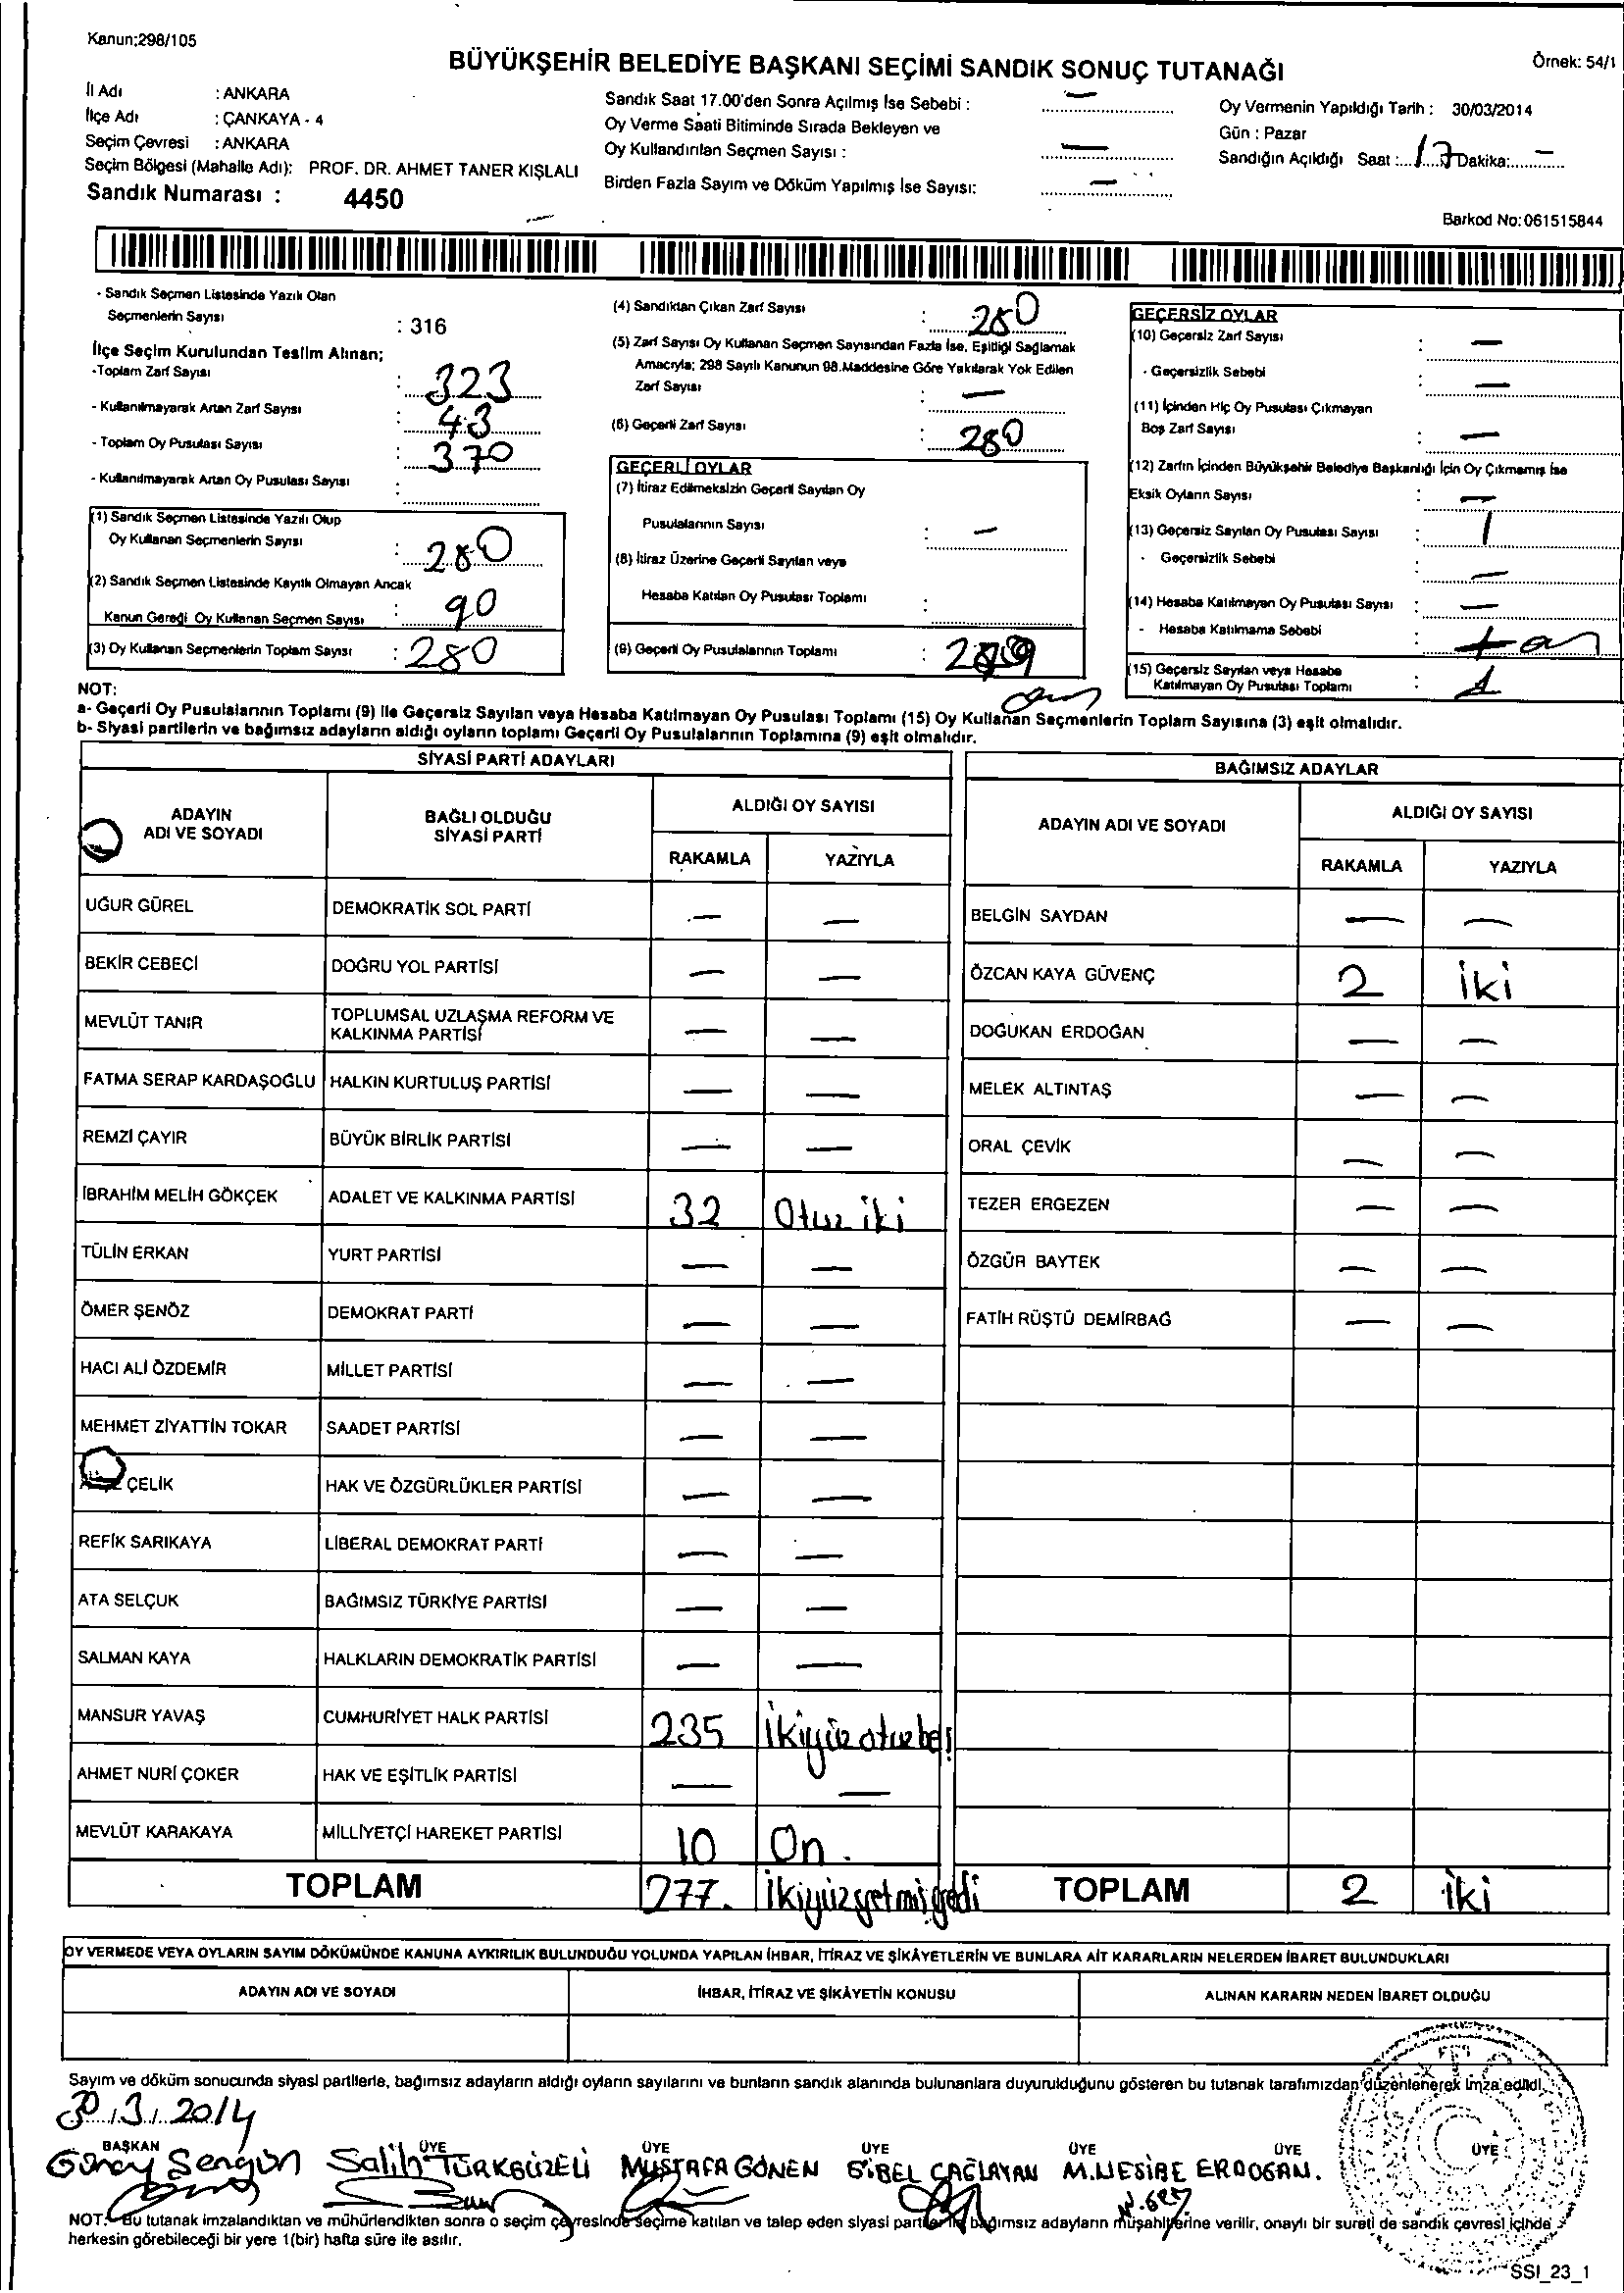 Kanun:298/105
BÜYÜKŞEHİR BELEDİYE BAŞKANI SEÇİMİ SANDIK SONUÇ TUTANAĞI
Örnek: 54/1
İl Adı : ANKARA
İlçe Adı : ÇANKAYA - 4
Seçim Çevresi : ANKARA
Seçim Bölgesi (Mahalle Adı): PROF. DR. AHMET TANER KIŞLALI
Sandık Numarası : 4450
Sandık Saat 17.00'den Sonra Açılmış İse Sebebi : —
Oy Verme Saati Bitiminde Sırada Bekleyen ve
Oy Kullandırılan Seçmen Sayısı : —
Birden Fazla Sayım ve Döküm Yapılmış İse Sayısı: —
Oy Vermenin Yapıldığı Tarih : 30/03/2014
Gün : Pazar
Sandığın Açıldığı Saat :...17...Dakika:...—...
Barkod No:061515844
- Sandık Seçmen Listesinde Yazılı Olan
Seçmenlerin Sayısı : 316
İlçe Seçim Kurulundan Teslim Alınan;
-Toplam Zarf Sayısı : 323
- Kullanılmayarak Artan Zarf Sayısı : 43
- Toplam Oy Pusulası Sayısı : 370
- Kullanılmayarak Artan Oy Pusulası Sayısı :
(1) Sandık Seçmen Listesinde Yazılı Olup
Oy Kullanan Seçmenlerin Sayısı : 280
(2) Sandık Seçmen Listesinde Kayıtlı Olmayan Ancak
Kanun Gereği Oy Kullanan Seçmen Sayısı : 90
(3) Oy Kullanan Seçmenlerin Toplam Sayısı : 280
(4) Sandıktan Çıkan Zarf Sayısı : 280
(5) Zarf Sayısı Oy Kullanan Seçmen Sayısından Fazla İse, Eşitliği Sağlamak
Amacıyla; 298 Sayılı Kanunun 98.Maddesine Göre Yakılarak Yok Edilen
Zarf Sayısı : —
(6) Geçerli Zarf Sayısı : 280
GEÇERLİ OYLAR
(7) İtiraz Edilmeksizin Geçerli Sayılan Oy
Pusulalarının Sayısı : —
(8) İtiraz Üzerine Geçerli Sayılan veya
Hesaba Katılan Oy Pusulası Toplamı :
(9) Geçerli Oy Pusulalarının Toplamı :
GEÇERSİZ OYLAR
(10) Geçersiz Zarf Sayısı : —
- Geçersizlik Sebebi : —
(11) İçinden Hiç Oy Pusulası Çıkmayan
Boş Zarf Sayısı : —
(12) Zarfın İçinden Büyükşehir Belediye Başkanlığı İçin Oy Çıkmamış İse
Eksik Oyların Sayısı : —
(13) Geçersiz Sayılan Oy Pusulası Sayısı : 1
- Geçersizlik Sebebi : —
(14) Hesaba Katılmayan Oy Pusulası Sayısı : —
- Hesaba Katılmama Sebebi :
(15) Geçersiz Sayılan veya Hesaba
Katılmayan Oy Pusulası Toplamı : 1
NOT:
a- Geçerli Oy Pusulalarının Toplamı (9) ile Geçersiz Sayılan veya Hesaba Katılmayan Oy Pusulası Toplamı (15) Oy Kullanan Seçmenlerin Toplam Sayısına (3) eşit olmalıdır.
b- Siyasi partilerin ve bağımsız adayların aldığı oyların toplamı Geçerli Oy Pusulalarının Toplamına (9) eşit olmalıdır.
SİYASİ PARTİ ADAYLARI
ADAYIN ADI VE SOYADI
BAĞLI OLDUĞU SİYASİ PARTİ
ALDIĞI OY SAYISI
RAKAMLA YAZIYLA
UĞUR GÜREL DEMOKRATİK SOL PARTİ — —
BEKİR CEBECİ DOĞRU YOL PARTİSİ — —
MEVLÜT TANIR TOPLUMSAL UZLAŞMA REFORM VE KALKINMA PARTİSİ — —
FATMA SERAP KARDAŞOĞLU HALKIN KURTULUŞ PARTİSİ — —
REMZİ ÇAYIR BÜYÜK BİRLİK PARTİSİ — —
İBRAHİM MELİH GÖKÇEK ADALET VE KALKINMA PARTİSİ 32 Otuz iki
TÜLİN ERKAN YURT PARTİSİ — —
ÖMER ŞENÖZ DEMOKRAT PARTİ — —
HACI ALİ ÖZDEMİR MİLLET PARTİSİ — —
MEHMET ZİYATTİN TOKAR SAADET PARTİSİ — —
ÇELİK HAK VE ÖZGÜRLÜKLER PARTİSİ — —
REFİK SARIKAYA LİBERAL DEMOKRAT PARTİ — —
ATA SELÇUK BAĞIMSIZ TÜRKİYE PARTİSİ — —
SALMAN KAYA HALKLARIN DEMOKRATİK PARTİSİ — —
MANSUR YAVAŞ CUMHURİYET HALK PARTİSİ 235 İkiyüz otuzbeş
AHMET NURİ ÇOKER HAK VE EŞİTLİK PARTİSİ — —
MEVLÜT KARAKAYA MİLLİYETÇİ HAREKET PARTİSİ 10 On.
TOPLAM 277. İkiyüzyetmişyedi
BAĞIMSIZ ADAYLAR
ADAYIN ADI VE SOYADI
ALDIĞI OY SAYISI
RAKAMLA YAZIYLA
BELGİN SAYDAN — —
ÖZCAN KAYA GÜVENÇ 2 iki
DOĞUKAN ERDOĞAN — —
MELEK ALTINTAŞ — —
ORAL ÇEVİK — —
TEZER ERGEZEN — —
ÖZGÜR BAYTEK — —
FATİH RÜŞTÜ DEMİRBAĞ — —
TOPLAM 2 iki
OY VERMEDE VEYA OYLARIN SAYIM DÖKÜMÜNDE KANUNA AYKIRILIK BULUNDUĞU YOLUNDA YAPILAN İHBAR, İTİRAZ VE ŞİKÂYETLERİN VE BUNLARA AİT KARARLARIN NELERDEN İBARET BULUNDUKLARI
ADAYIN ADI VE SOYADI İHBAR, İTİRAZ VE ŞİKÂYETİN KONUSU ALINAN KARARIN NEDEN İBARET OLDUĞU
Sayım ve döküm sonucunda siyasi partilerle, bağımsız adayların aldığı oyların sayılarını ve bunların sandık alanında bulunanlara duyurulduğunu gösteren bu tutanak tarafımızdan düzenlenerek imza edildi.
30/3/2014
BAŞKAN ÜYE ÜYE ÜYE ÜYE ÜYE ÜYE
Günay Sengün Salih TÜRKGÜZELİ MUSTAFA GÖNEN SİBEL ÇAĞLAYAN M.NESİBE ERDOĞAN.
NOT: Bu tutanak imzalandıktan ve mühürlendikten sonra o seçim çevresinde seçime katılan ve talep eden siyasi partilerin bağımsız adayların müşahitlerine verilir, onaylı bir sureti de sandık çevresi içinde
herkesin görebileceği bir yere 1(bir) hafta süre ile asılır.
SSI_23_1